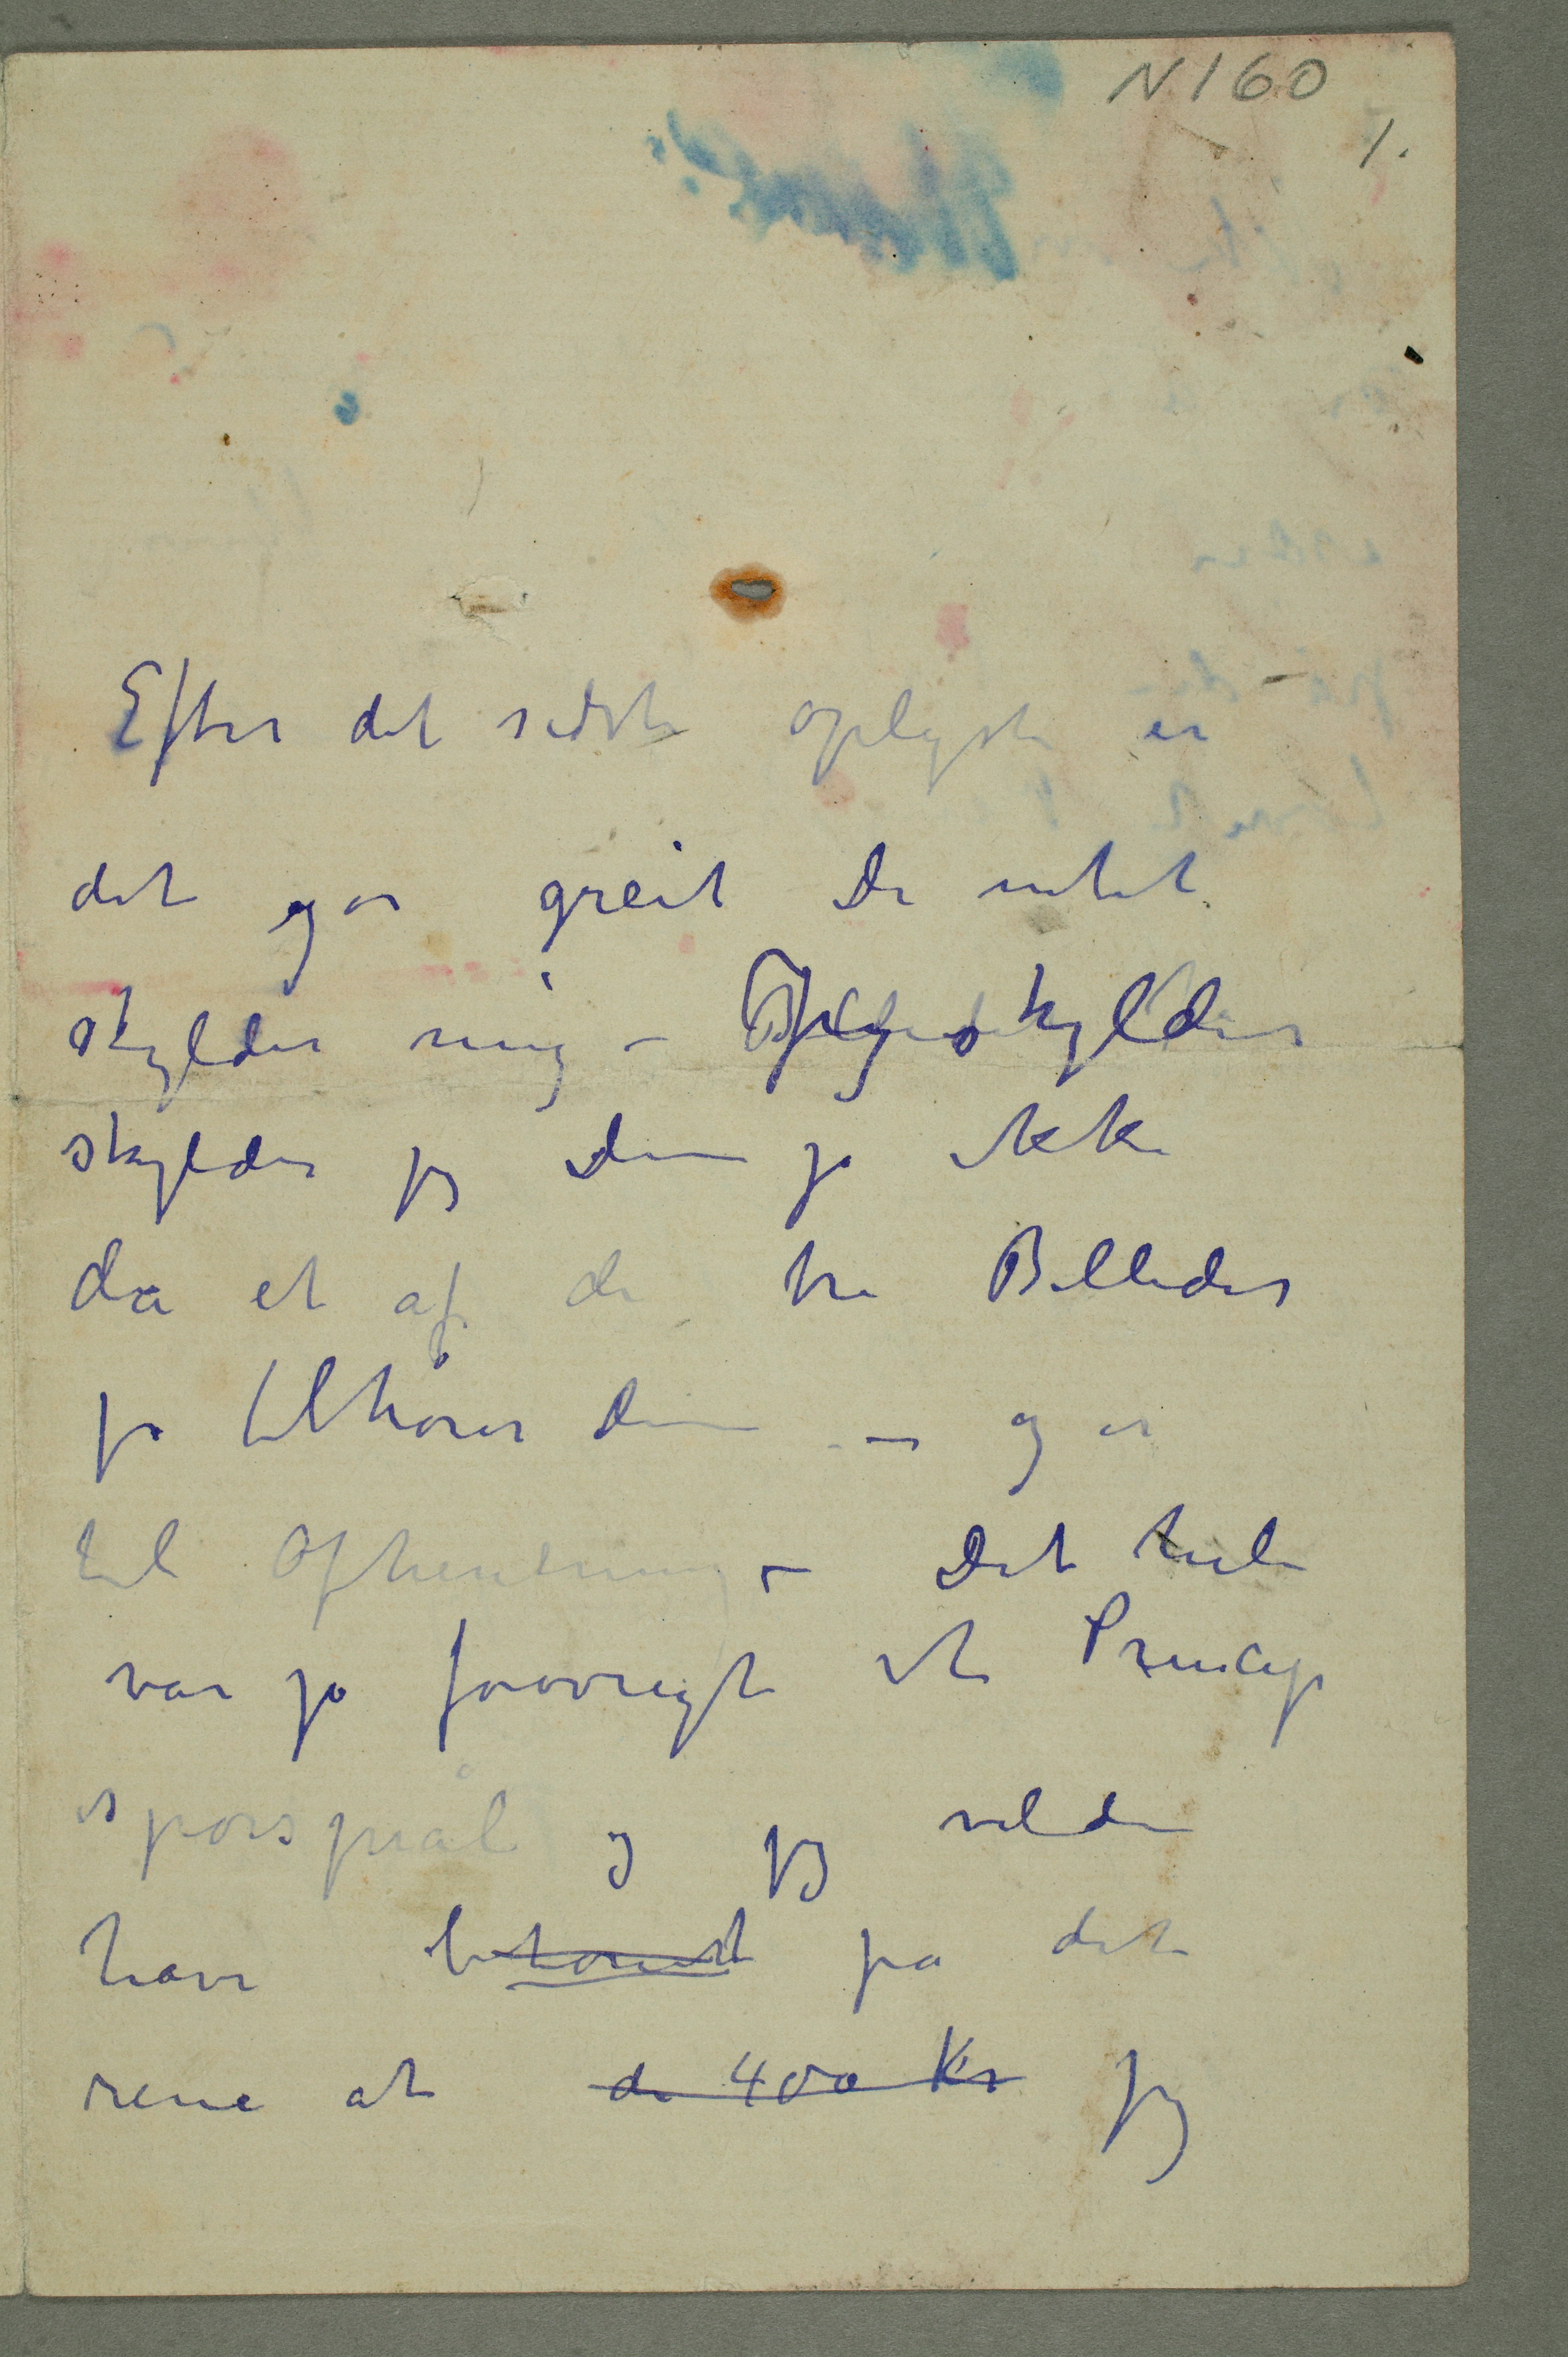 N160
1.
Efter det sidste oplyste er
det jo greit De intet
skylder mig –
skylder jeg Dem jo ikke
da et af de tre Billeder
jo tilhører Dem – og er
til Afhentning – Det hele
var jo forøvrigt et Princip
spørsmål og jeg vilde
have betonet på det
rene at de 400 Kr jeg